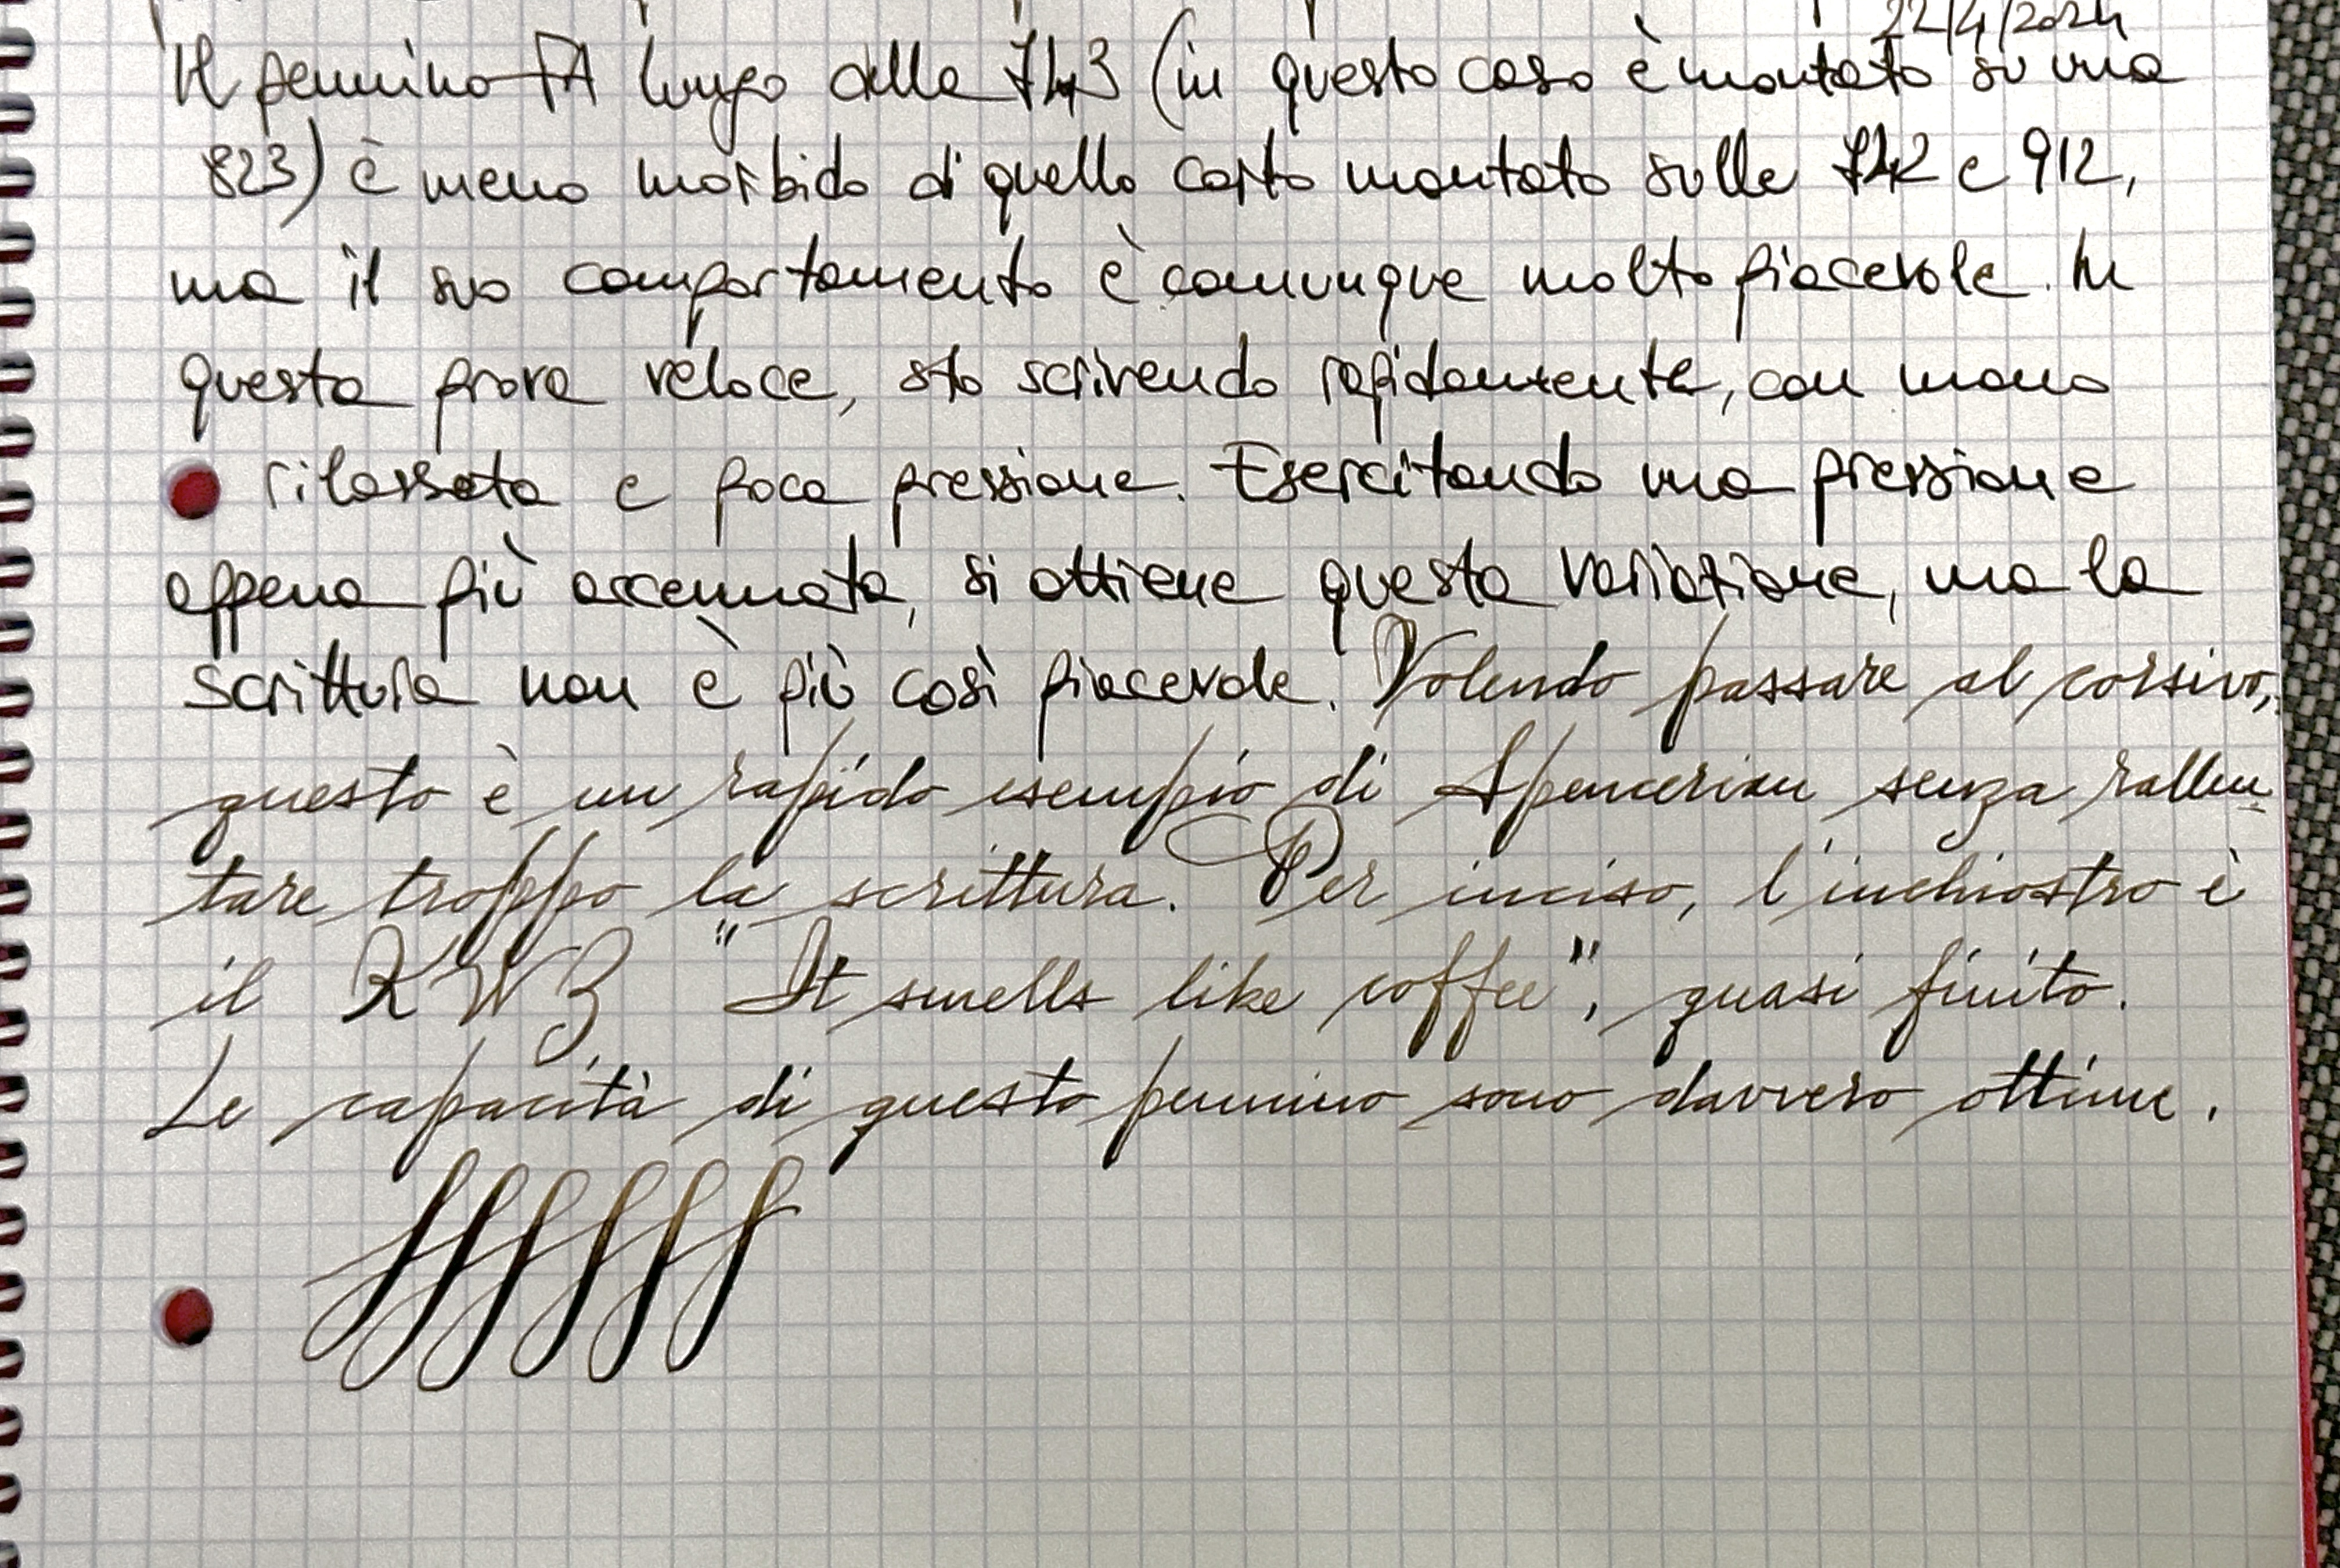 22/4/2024
Il pennino FA lungo della 743 (in questo caso è montato su una
823) è meno morbido di quello corto montato sulle 742 e 912,
ma il suo comportamento è comunque molto piacevole. In
questa prova veloce, sto scrivendo rapidamente, con mano
rilassata e poca pressione. Esercitando una pressione
appena più accennata, si ottiene questa variazione, ma la
scrittura non è più così piacevole. Volendo passare al corsivo,
questo è un rapido esempio di Spencerian senza rallen-
tare troppo la scrittura. Per inciso, l'inchiostro è
il KWZ "It smells like coffee", quasi finito.
Le capacità di questo pennino sono davvero ottime.